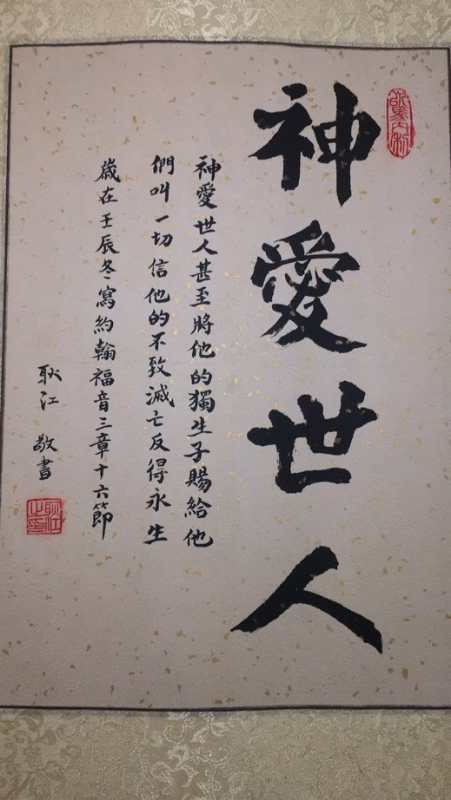 神愛世人
神愛世人甚至將他的獨生子賜給他
們叫一切信他的不致滅亡反得永生
歲在壬辰冬寫約翰福音三章十六節
耿江 敬書